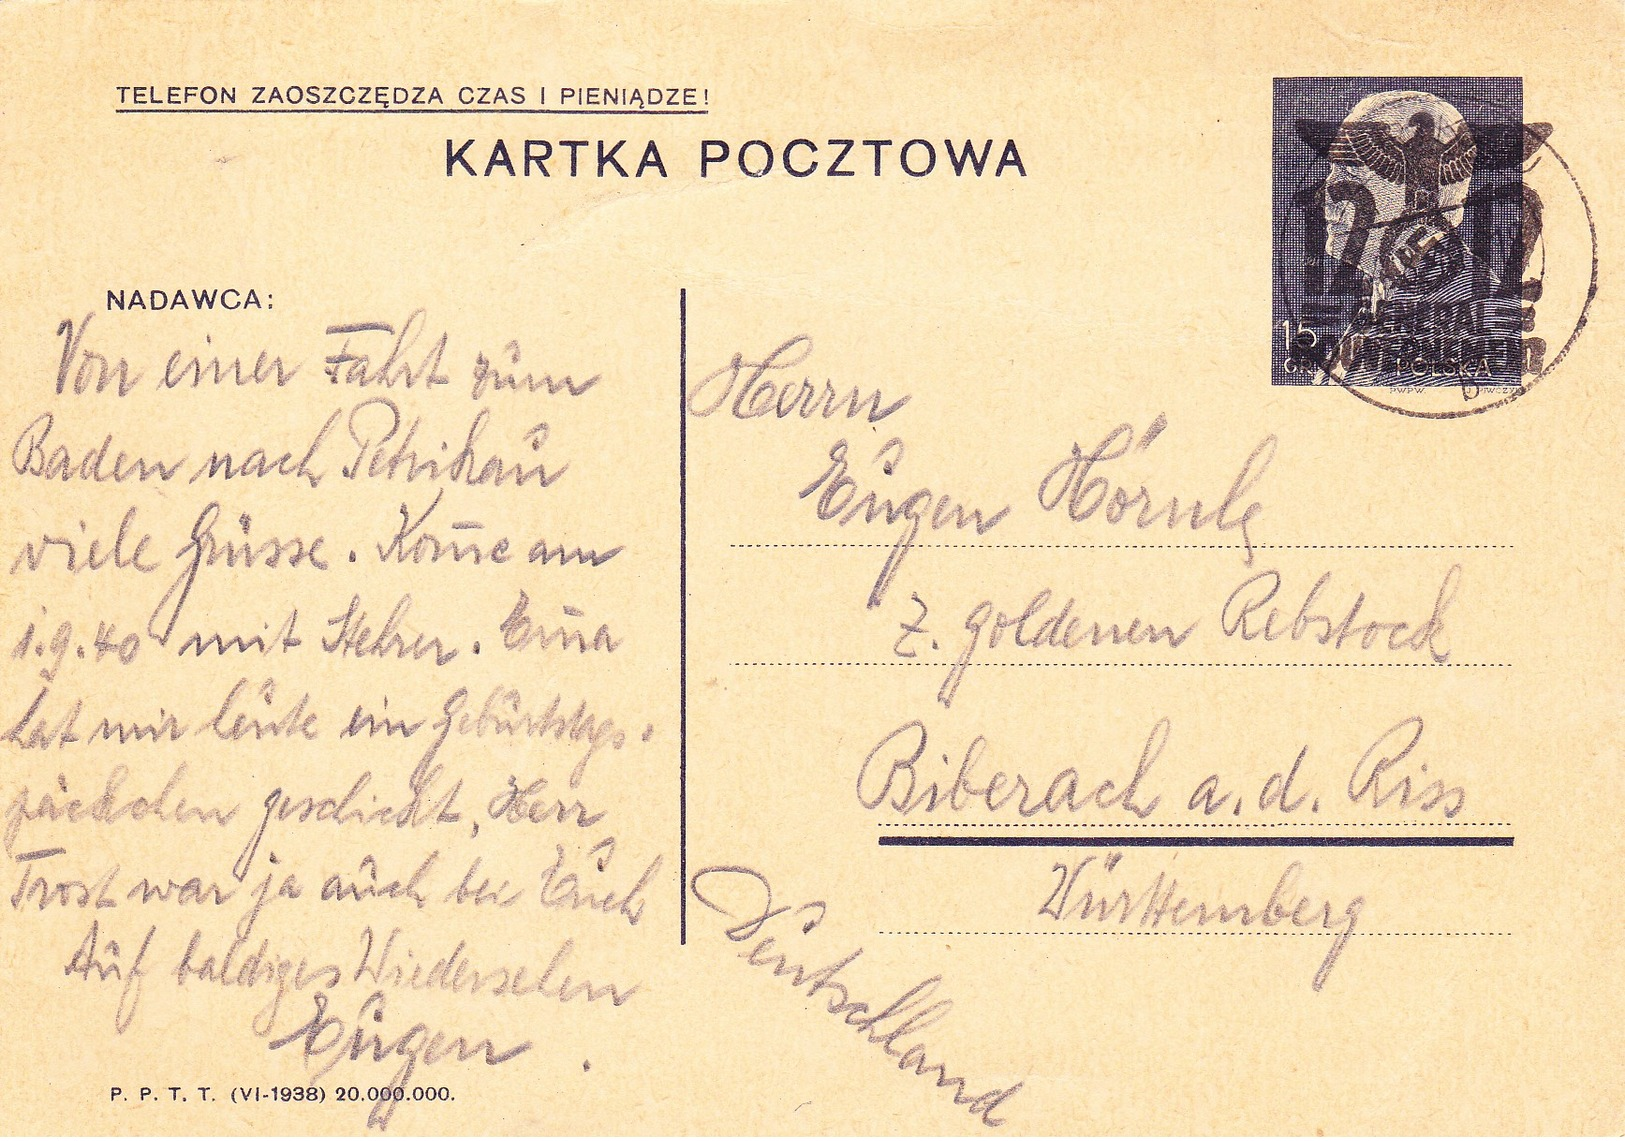 TELEFON ZAOSZCZĘDZA CZAS I PIENIĄDZE!
KARTKA POCZTOWA
12 12
GENERAL=
GOUVERNEMENT
15
GR
POLSKA
PWPW.
NADAWCA:
Von einer Fahrt zum
Baden nach Petrikau
viele Grüsse. Kom̅e am
1.9.40 mit Stehrer. Em̅a
hat mir heute ein Geburtstags-
päckchen geschickt, Herr
Trost war ja auch bei Euch
Auf baldiges Wiedersehen
Eugen.
P. P. T. T. (VI-1938) 20.000.000.
Herrn
Eugen Hörnle
z. goldenen Rebstock
Biberach a. d. Riss
Württemberg
Deutschland